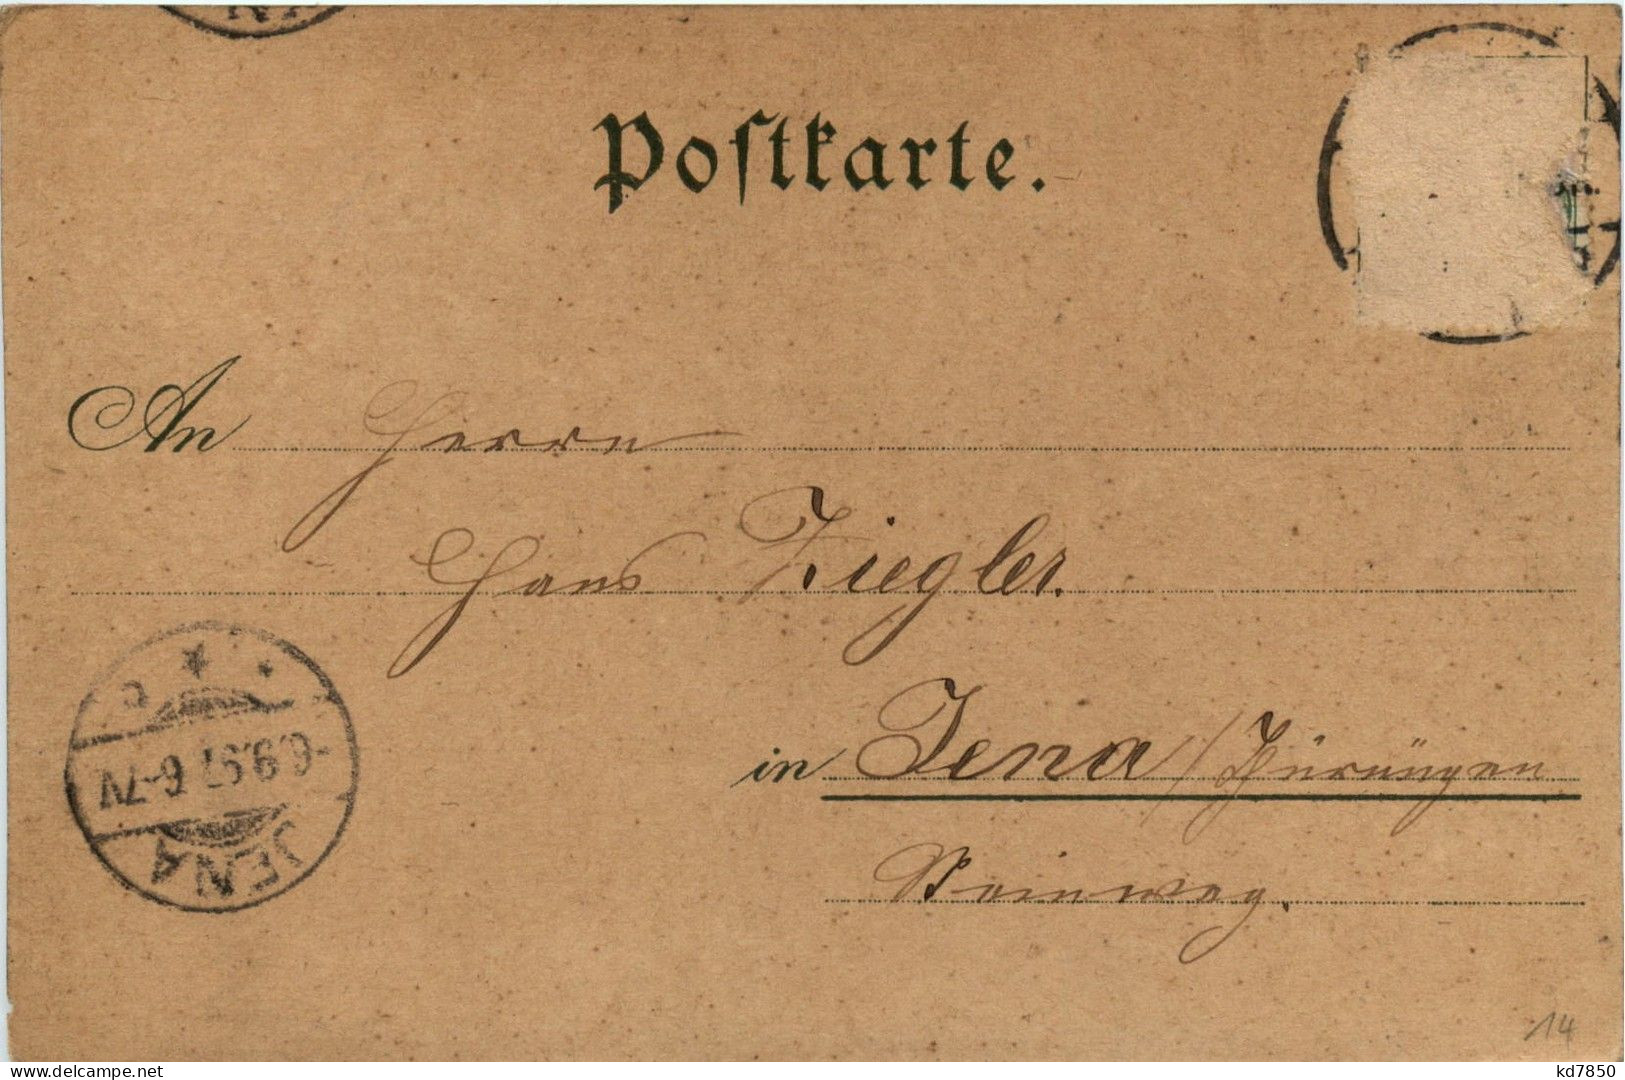 Postkarte.
An Herrn
Hans Ziegler.
in Jena / Thüringen
Steinweg.
-6.9.97 6-7N
JENA
14
kd7850